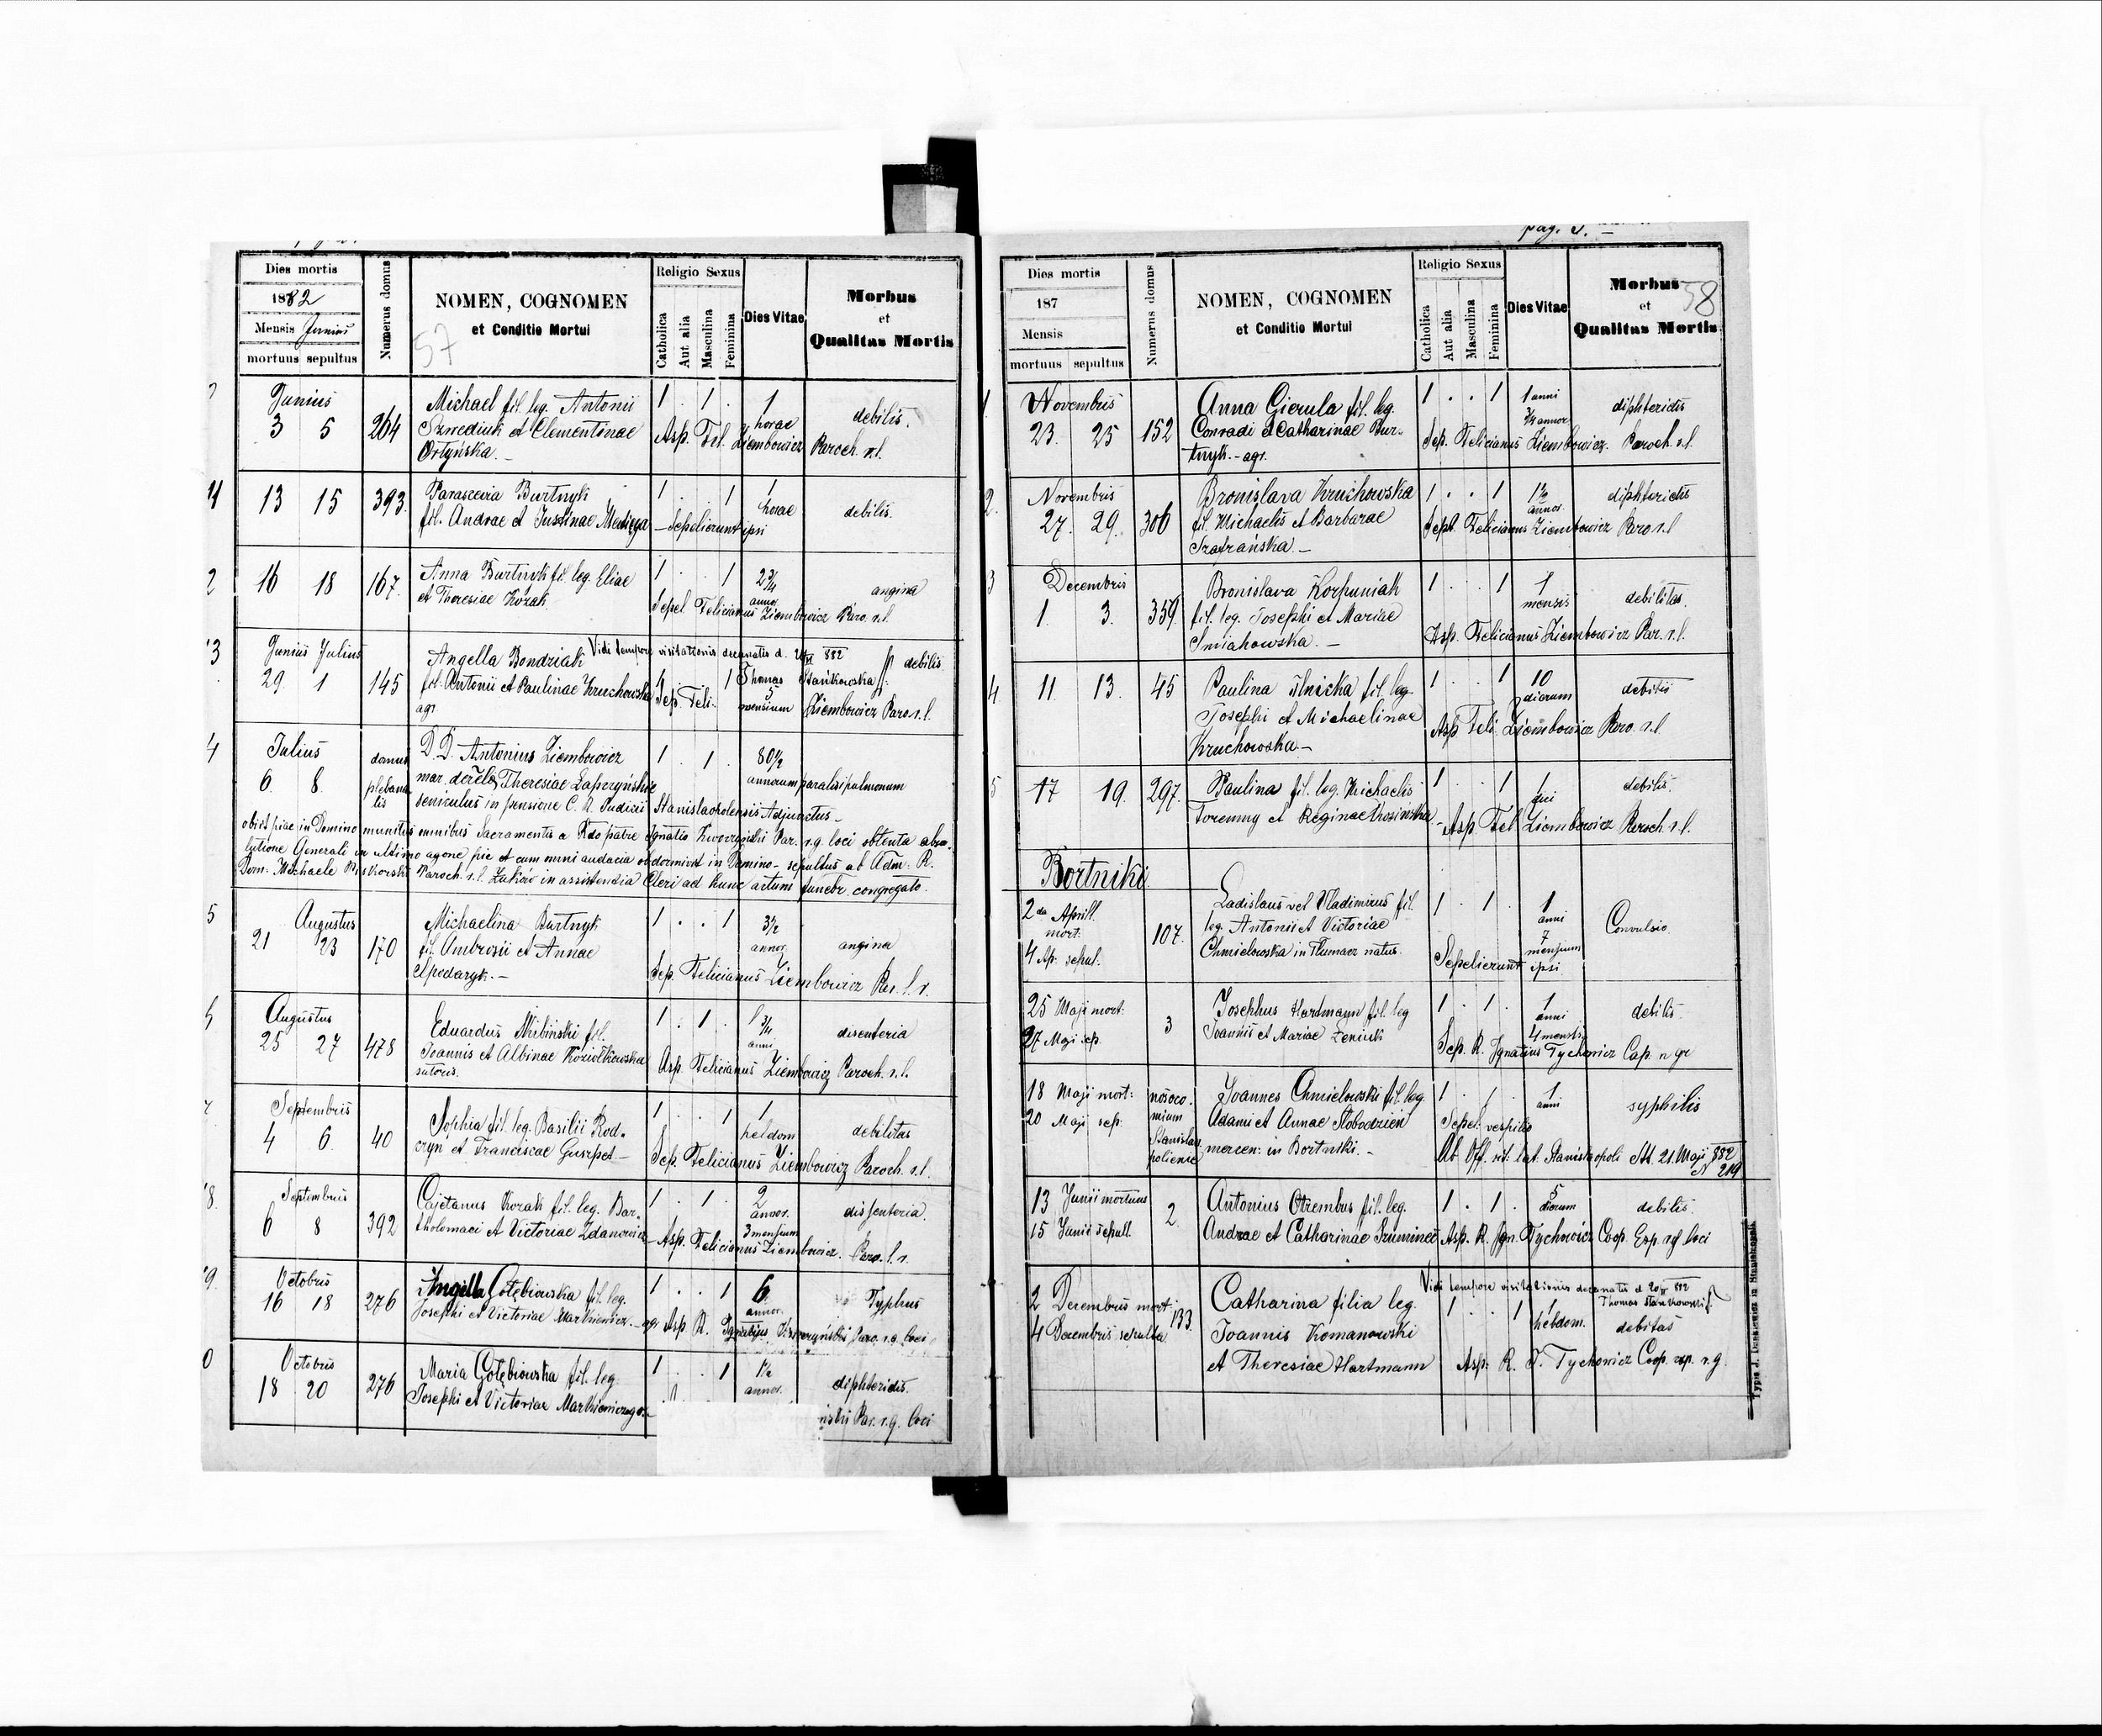 Dies mortis
1882
Mensis Junius
mortuus sepultus
Numerus domus
NOMEN, COGNOMEN
et Conditio Mortui
57
Religio Sexus
Catholica
Aut alia
Masculina
Feminina
Dies Vitae
Morbus
et
Qualitas Mortis
Junius
3 5 264
Michael fil. leg. Antonii
Szwediuk et Clementinae
Ortyńska.
1 . 1 . 1 horae debilis.
Asp. Fel. Ziembowicz Paroch. r.l.
13 15 393.
Parascevia Burtnyk
fil. Andrae et Justinae Medyga
1 . . 1 1 horae debilis.
Sepelierunt ipsi
2 16 18 167.
Anna Burtnyk fil. leg. Eliae
et Theresiae Kozak.
1 . . 1 2 3/4 annor. angina
Sepel. Felicianus Ziembowicz Paro. r.l.
3 Junius Julius
29 1 145
Vidi tempore visitationis decanatis d. 882
Thomas Stańkowski
Angella Bondziak
fil. Antonii et Paulinae Kruchowska
agr.
1 5 mensium debilis
Sep. Feli- Ziembowicz Paro. r.l.
4 Julius
6. 8. domus plebanalis
D. D. Antonius Ziembowicz
mar. derel. Theresiae Łapczyńskie
seniculus in pensione C. R. Judicii Stanislaopolensis Adjunctus
1 . 1 . 80 1/2 annorum paralisi pulmonum
obiit piae in Domino munitus omnibus Sacramentis a Rdo patre Ignatio Par. r.g. loci obtenta abso-
lutione Generali in ultimo agone pie et cum omni audacia obdormivit in Domino - sepultus ab Adm: R.
Dom: Michaele Paroch. r.l. Łukiw in assistendia Cleri ad hunc actum funebr. congregato.
5 Augustus
21 23 170
Michaelina Burtnyk
fil. Ambrosii et Annae
Spodaryk.
1 . . 1 3 1/2 annor. angina
Sep. Felicianus Ziembowicz Par. l. r.
Augustus
25 27 478
Eduardus fil.
Joannis et Albinae Koziołkiewska
sutoris.
1 . 1 . 1 3/4 anni disenteria
Asp. Felicianus Ziembowicz Paroch. r.l.
Septembris
4 6. 40
Sophia fil. leg. Basilii Rod-
czyn et Franciscae
1 . . 1 1 hebdom debilitas
Sep. Felicianus Ziembowicz Paroch. r.l.
8. Septembris
6 8 392
Cajetanus Kozak fil. leg. Bar-
tholomaei et Victoriae Zdanowicz
1 . 1 . 2 annor. 3 mensium dissenteria.
Asp. Felicianus Ziembowicz. Paro. l. r.
9. Octobris
16 18 276
Angella Gołębiowska fil. leg.
Josephi et Victoriae Markiewicz. agr.
1 . . 1 6 annor. Typhus
Asp. R. Ignatius Paro. r.g. loci
0 Octobris
18 20 276
Maria Gołębiowska fil. leg.
Josephi et Victoriae Markiewicz agr.
1 . . 1 1 1/2 annor. diphteridis.
Par. r.g. loci
pag.
Dies mortis
187
Mensis
mortuus sepultus
Numerus domus
NOMEN, COGNOMEN
et Conditio Mortui
Religio Sexus
Catholica
Aut alia
Masculina
Feminina
Dies Vitae
Morbus
et
Qualitas Mortis
58
1. Novembris
23. 25 152
Anna Gierula fil. leg.
Conradi et Catharinae Bur-
tnyk. - agr.
1 . . 1 1 anni 3/4 annor diphteridis
Sep. Felicianus Ziembowicz. Paroch. r.l.
2. Novembris
27. 29. 306
Bronislava Kruchowska
fil. Michaelis et Barbarae
Szafrańska.
1 . . 1 1 1/2 annor. diphteridis
Sepel. Felicianus Ziembowicz Paro r.l
3 Decembris
1. 3. 359.
Bronislava Korpuniak
fil. leg. Josephi et Mariae
Smiahowska.
1 . . 1 1 mensis debilitas.
Asp. Felicianus Ziembowicz Par. r.l.
4 11. 13. 45
Paulina Ilnicka fil. leg.
Josephi et Michaelinae
Kruchowska
1 . . 1 10 dierum debilis
Asp. Feli. Ziembowicz Paro. r.l.
5 17 19. 297.
Paulina fil. leg. Michaelis
Foremny et Reginae Kosińska
1 . . 1 1 diei debilis.
Asp. Fel Ziembowicz Paroch. r.l.
Bortniki
2da Aprill. mort:
4 Ap. sepul. 107.
Ladislaus vel Vladimirus fil.
leg. Antonii et Victoriae
Chmielowska in Tłumacz natus.
1 . 1 . 1 anni 7 mensium Convulsio.
Sepelierunt ipsi
25 Maji mort:
27 Maji sep. 3
Josephus Hartmann fil. leg
Joannis et Mariae Zeniuk
1 . 1 . 1 anni 4 mensis debilis.
Sep. R. Ignatius Tychowicz Cap. r gr
18 Maji mort:
20 Maji sep:
nosocomium Stanislaopoliense
Joannes Chmielowski fil. leg
Adami et Annae Słobodzien
mercen: in Bortniki. -
1 . 1 . 1 anni syphilis
Sepel. vespilo
Ab Off. rit: lat: Stanislaopoli dtt. 21. Maji 882
N 219
13 Junii mortuus
15 Junii sepult. 2.
Antonius Otrembus fil. leg.
Andrae et Catharinae
1 . 1 . 5 dierum debilis.
Asp. R. Ign. Tychowicz Coop. Exp. rg loci
2 Decembris mort:
4 Decembris sepulta 133.
Vidi tempore visitationis decanatis d. 882
Thomas Stańkowski
Catharina filia leg.
Joannis Romanowski
et Theresiae Hartmann
1 . . 1 1 hebdom. debitas
Asp: R. I. Tychowicz Coop. exp. r. g.
Typis J. Dankiewicz in Stanislopoli